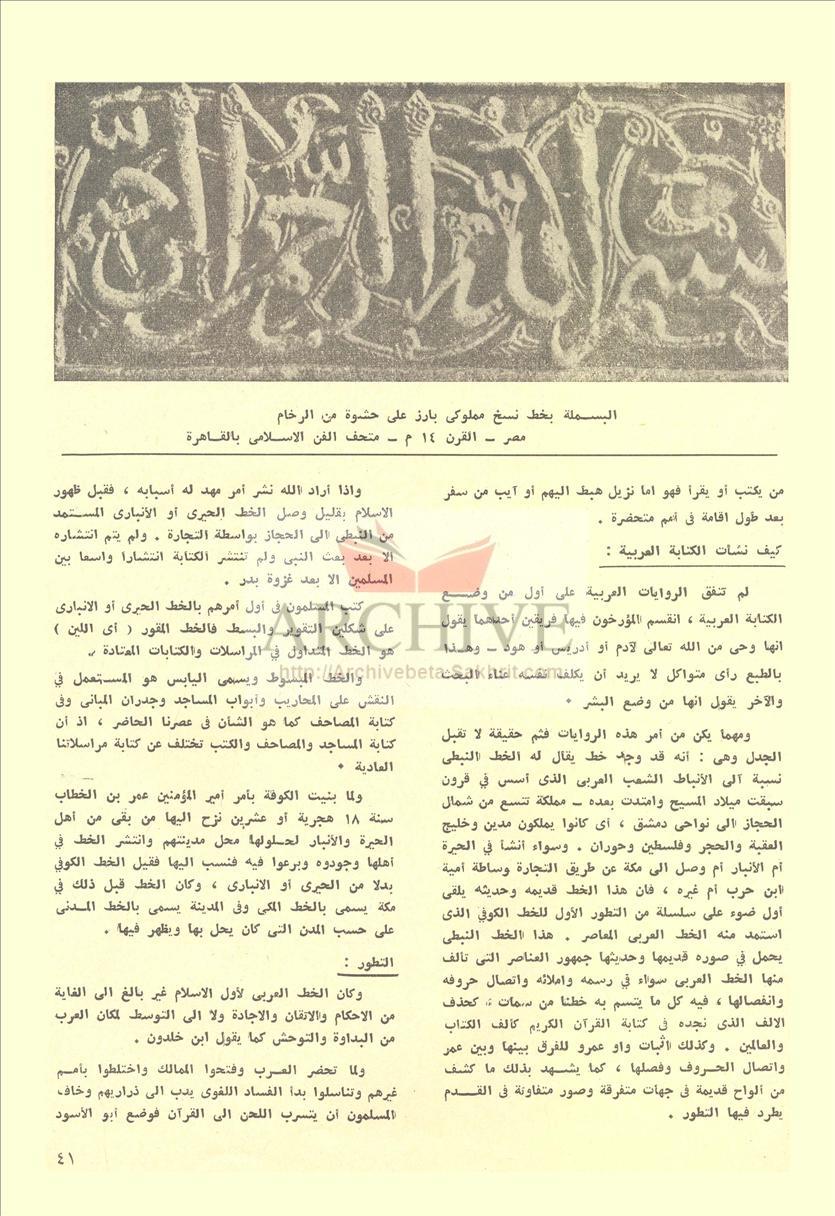 البسملة بخط نسخ مملوكى بارز على حشوة من الرخام
مصر – القرن ١٤ م – متحف الفن الاسلامى بالقاهرة
من يكتب أو يقرأ فهو اما نزيل هبط اليهم أو آيب من سفر
بعد طول اقامة فى أمم متحضرة .
كيف نشأت الكتابة العربية :
لم تتفق الروايات العربية على أول من وضع
الكتابة العربية ، انقسم المؤرخون فيها فريقين أحدهما يقول
انها وحى من الله تعالى لآدم أو أدريس أو هود – وهذا
بالطبع رأى متواكل لا يريد أن يكلف نفسه عناء البحث
والآخر يقول انها من وضع البشر .
ومهما يكن من أمر هذه الروايات فثم حقيقة لا تقبل
الجدل وهى : أنه قد وجد خط يقال له الخط النبطى
نسبة الى الأنباط الشعب العربى الذى أسس في قرون
سبقت ميلاد المسيح وامتدت بعده – مملكة تتسع من شمال
الحجاز الى نواحى دمشق ، أى كانوا يملكون مدين وخليج
العقبة والحجر وفلسطين وحوران . وسواء أنشأ في الحيرة
أم الأنبار أم وصل الى مكة عن طريق التجارة وساطة أمية
ابن حرب أم غيره ، فان هذا الخط قديمه وحديثه يلقى
أول ضوء على سلسلة من التطور الأول للخط الكوفي الذى
استمد منه الخط العربى المعاصر . هذا الخط النبطى
يحمل في صوره قديمها وحديثها جمهور العناصر التى تألف
منها الخط العربى سواء في رسمه واملائه واتصال حروفه
وانفصالها ، فيه كل ما يتسم به خطنا من سمات ، كحذف
الالف الذى نجده فى كتابة القرآن الكريم كالف الكتاب
والعالمين . وكذلك اثبات واو عمرو للفرق بينها وبين عمر
واتصال الحروف وفصلها ، كما يشهد بذلك ما كشف
من ألواح قديمة فى جهات متفرقة وصور متفاوتة فى القدم
يطرد فيها التطور .
واذا أراد الله نشر أمر مهد له أسبابه ، فقبل ظهور
الاسلام بقليل وصل الخط الحيرى أو الأنبارى المستمد
من النبطى الى الحجاز بواسطة التجارة . ولم يتم انتشاره
الا بعد بعث النبى ولم تنتشر الكتابة انتشارا واسعا بين
المسلمين الا بعد غزوة بدر .
كتب المسلمون فى أول أمرهم بالخط الحيرى أو الانبارى
على شكلين التقوير والبسط فالخط المقور ( أى اللين )
هو الخط المتداول في المراسلات والكتابات المعتادة .
والخط المبسوط ويسمى اليابس هو المستعمل في
النقش على المحاريب وأبواب المساجد وجدران المبانى وفى
كتابة المصاحف كما هو الشأن فى عصرنا الحاضر ، اذ أن
كتابة المساجد والمصاحف والكتب تختلف عن كتابة مراسلاتنا
العادية .
ولما بنيت الكوفة بأمر أمير المؤمنين عمر بن الخطاب
سنة ١٨ هجرية أو عشرين نزح اليها من بقى من أهل
الحيرة والأنبار لحلولها محل مدينتهم وانتشر الخط في
أهلها وجودوه وبرعوا فيه فنسب اليها فقيل الخط الكوفي
بدلا من الحيرى أو الانبارى ، وكان الخط قبل ذلك في
مكة يسمى بالخط المكى وفى المدينة يسمى بالخط المدنى
على حسب المدن التى كان يحل بها ويظهر فيها .
التطور :
وكان الخط العربى لأول الاسلام غير بالغ الى الغاية
من الاحكام والاتقان والاجادة ولا الى التوسط لمكان العرب
من البداوة والتوحش كما يقول ابن خلدون .
ولما تحضر العرب وفتحوا الممالك واختلطوا بأمم
غيرهم وتناسلوا بدأ الفساد اللغوى يدب الى ذراريهم وخاف
المسلمون أن يتسرب اللحن الى القرآن فوضع أبو الأسود
٤١
ARCHIVE
http://Archivebeta.Sakhrit.com